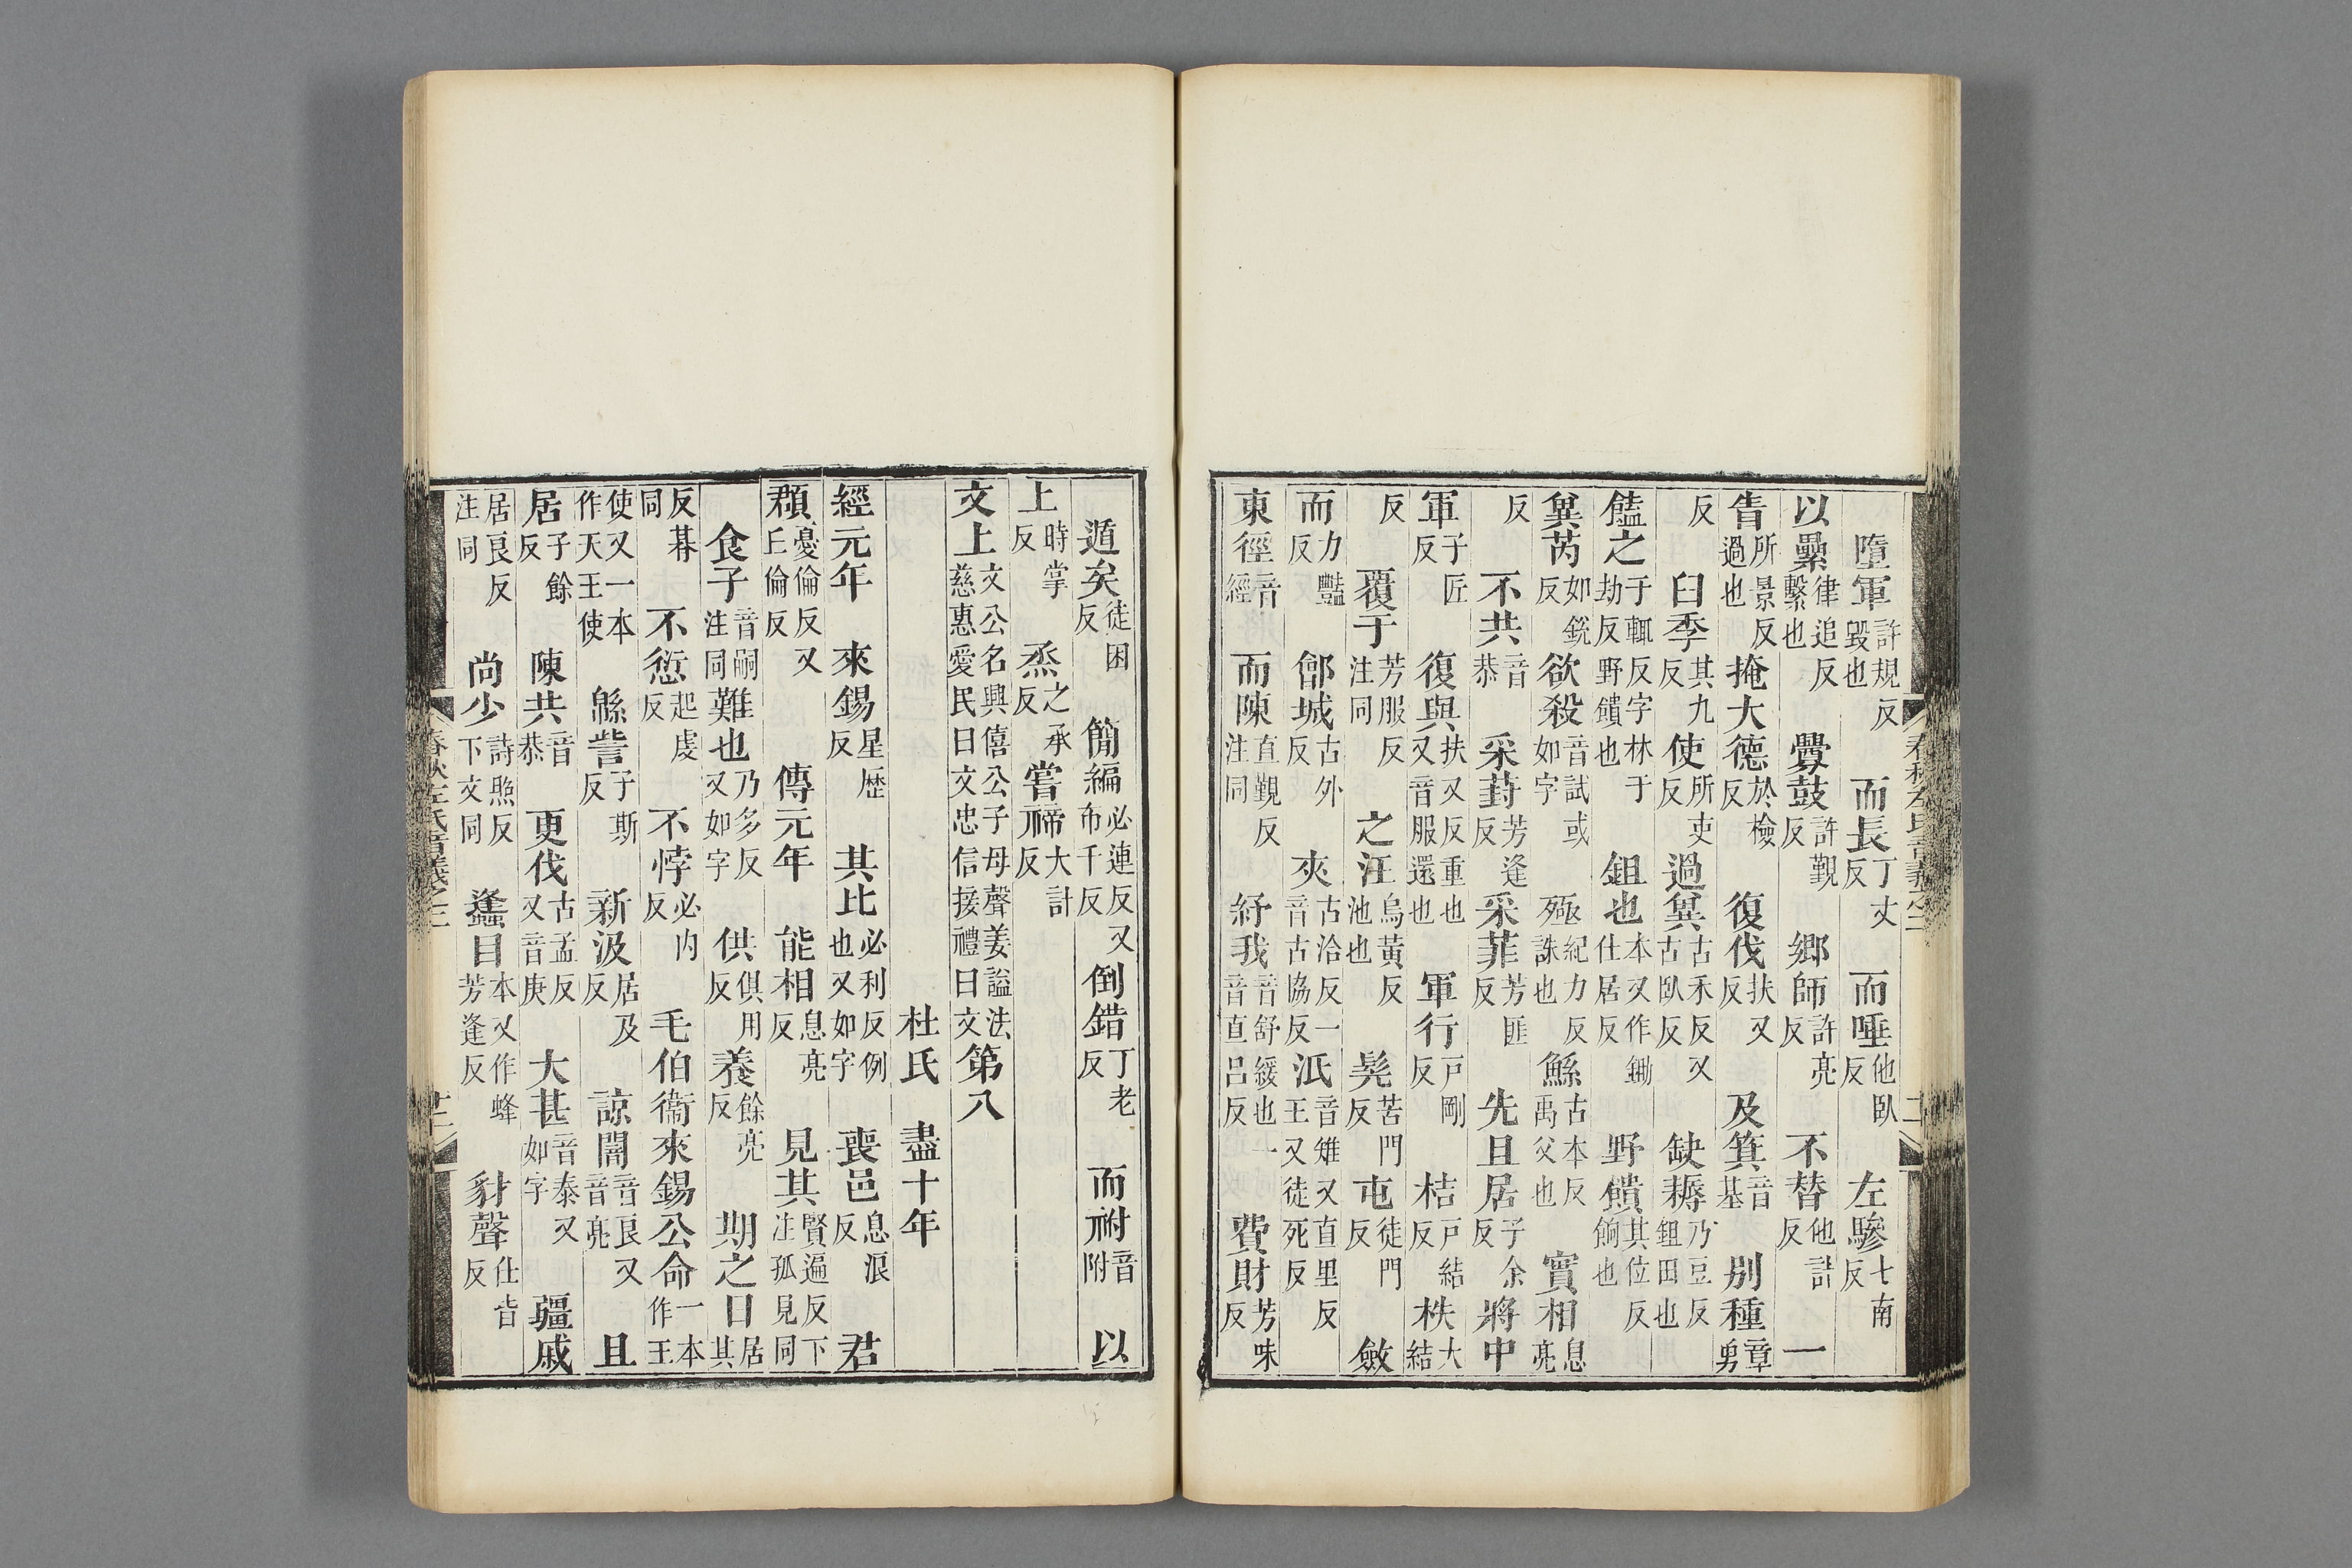 墮軍許規反毀也　而長丁丈反　而唾他臥反　左驂七南反
以纍律追反繫也　釁鼓許覲反　鄉師許亮反　不替他計反　一
眚所景反過也　掩大德於檢反　復伐扶又反　及箕音基　別種章勇
反　臼季其九反　使所吏反　過冀古禾反又古臥反　缺耨乃豆反鉏田也
饁之于輒反字林于劫反野饋也　鉏也本又作鋤仕居反　野饋其位反餉也
冀芮如銳反　欲殺音試或如字　殛紀力反誅也　鯀古本反禹父也　實相息亮
反　不共音恭　采葑芳逢反　采菲芳匪反　先且居子余反　將中
軍子匠反　復與扶又反重也又音服還也　軍行戶剛反　桔戶結反　柣大結
反　覆于芳服反注同　之汪烏黃反池也　髡苦門反　屯徒門反　斂
而力豔反　鄶城古外反　夾古洽反一音古協反　泜音雉又直里反王又徒死反
東徑音經　而陳直覲反注同　紓我音舒緩也一音直呂反　費財芳味反
遁矣徒困反　簡編必連反又布千反　倒錯丁老反　而祔音附　以
上時掌反　烝之承反　嘗禘大計反
文上文公名興僖公子母聲姜謚法慈惠愛民曰文忠信接禮曰文第八
杜氏　盡十年
經元年　來錫星歷反　其比必利反例也又如字　喪邑息浪反　君
頵憂倫反又丘倫反　傳元年　能相息亮反　見其賢遍反下注孤見同
食子音嗣注同　難也乃多反又如字　供俱用反　養餘亮反　期之日居其
反朞同　不愆起虔反　不悖必內反　毛伯衞來錫公命一本作王
使又一本作天王使　緜訾子斯反　新汲居及反　諒闇音良又音亮　且
居子餘反　陳共音恭　更伐古孟反又音庚　大甚音泰又如字　疆戚
居良反注同　尚少詩照反下文同　蠭目本又作蜂芳逢反　豺聲仕皆反